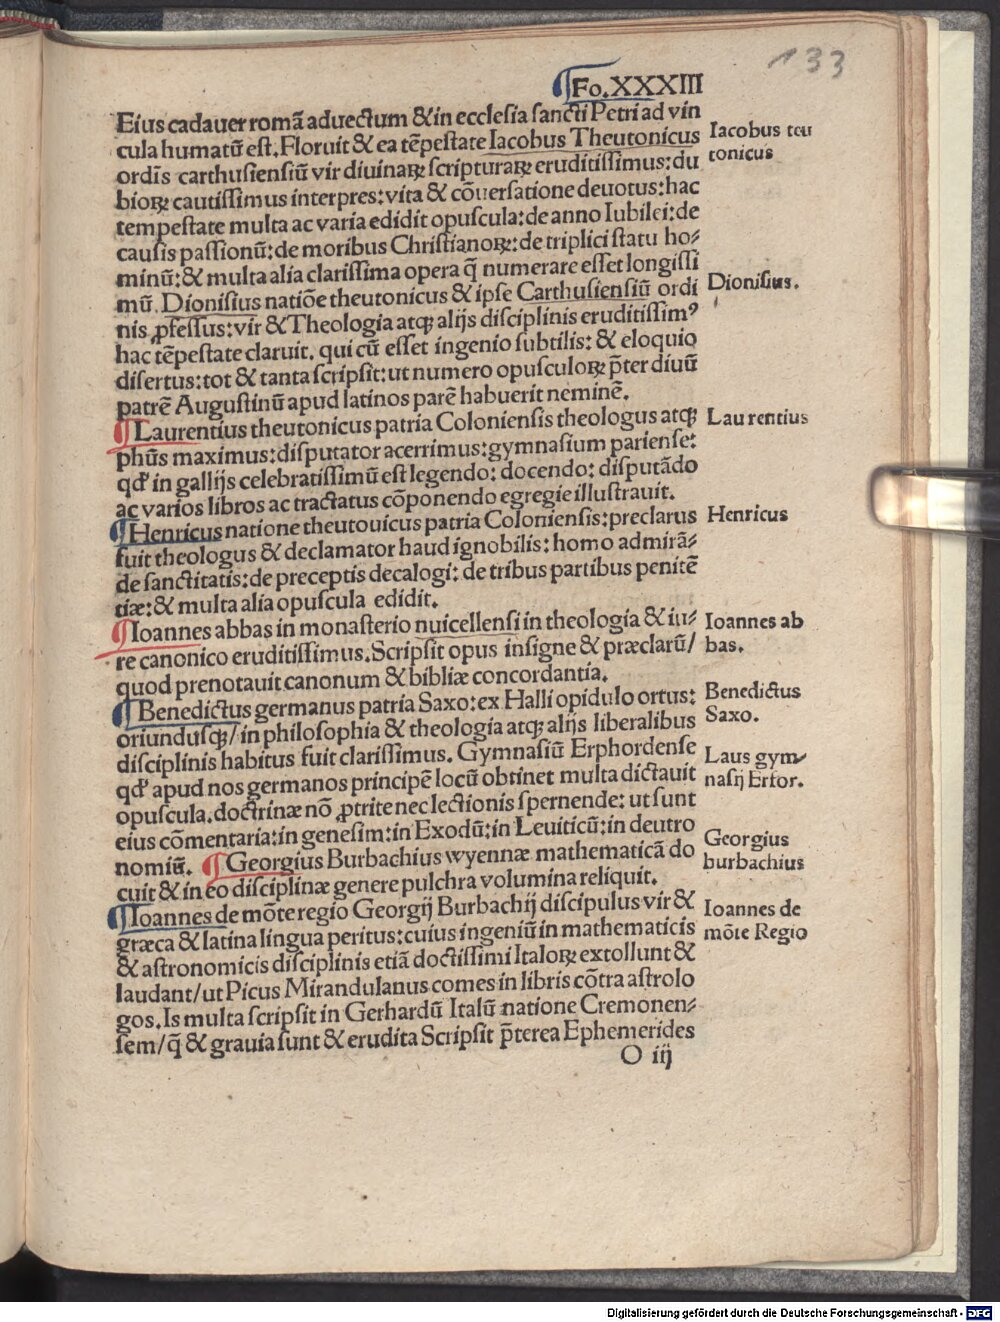 133
¶Fo.XXXIII
Eius cadauer romã aduectum & in ecclesia sancti Petri ad vin
cula humatũ est. Floruit & ea tẽpestate Iacobus Theutonicus
ordĩs carthusiensiũ vir diuinaꝝ scripturaꝝ eruditissimus: du
bioꝝ cautissimus interpres: vita & cõuersatione deuotus: hac
tempestate multa ac varia edidit opuscula: de anno Iubilei: de
causis passionũ: de moribus Christianoꝝ: de triplici statu ho⸗
minũ: & multa alia clarissima opera q̃ numerare esset longissi
mũ. Dionisius natiõe theutonicus & ipse Carthusiensiũ ordi
nis ꝓfessus: vir & Theologia atqꝫ alijs disciplinis eruditissimꝰ
hac tẽpestate claruit. qui cũ esset ingenio subtilis: & eloquio
disertus: tot & tanta scripsit: ut numero opusculoꝝ p̃ter diuũ
patrẽ Augustinũ apud latinos parẽ habuerit neminẽ.
¶Laurentius theutonicus patria Coloniensis theologus atqꝫ
phũs maximus: disputator acerrimus: gymnasium pariense:
qđ in gallijs celebratissimũ est legendo: docendo: disputãdo
ac varios libros ac tractatus cõponendo egregie illustrauit.
¶Henricus natione theutouicus patria Coloniensis: preclarus
fuit theologus & declamator haud ignobilis: homo admirã⸗
de sanctitatis: de preceptis decalogi: de tribus partibus penitẽ
tiæ: & multa alia opuscula edidit.
¶Ioannes abbas in monasterio nuicellensi in theologia & iu⸗
re canonico eruditissimus. Scripsit opus insigne & præclarũ/
quod prenotauit canonum & bibliæ concordantia.
¶Benedictus germanus patria Saxo: ex Halli opidulo ortus:
oriundusqꝫ/ in philosophia & theologia atqꝫ alijs liberalibus
disciplinis habitus fuit clarissimus. Gymnasiũ Erphordense
qđ apud nos germanos principẽ locũ obtinet multa dictauit
opuscula. doctrinæ nõ ꝓtrite nec lectionis spernende: ut sunt
eius cõmentaria: in genesim: in Exodũ: in Leuiticũ: in deutro
nomiũ. ¶Georgius Burbachius wyennæ mathematicã do
cuit & in eo disciplinæ genere pulchra volumina reliquit.
¶Ioannes de mõte regio Georgij Burbachij discipulus vir &
græca & latina lingua peritus: cuius ingeniũ in mathematicis
& astronomicis disciplinis etiã doctissimi Italoꝝ extollunt &
laudant/ ut Picus Mirandulanus comes in libris cõtra astrolo
gos. Is multa scripsit in Gerhardũ Italũ natione Cremonen⸗
sem/ q̃ & grauia sunt & erudita Scripsit p̃terea Ephemerides
O iij
Iacobus teu
tonicus
Dionisius.
Laurentius
Henricus
Ioannes ab
bas.
Benedictus
Saxo.
Laus gym⸗
nasij Erfor.
Georgius
burbachius
Ioannes de
mõte Regio
Digitalisierung gefördert durch die Deutsche Forschungsgemeinschaft - DFG